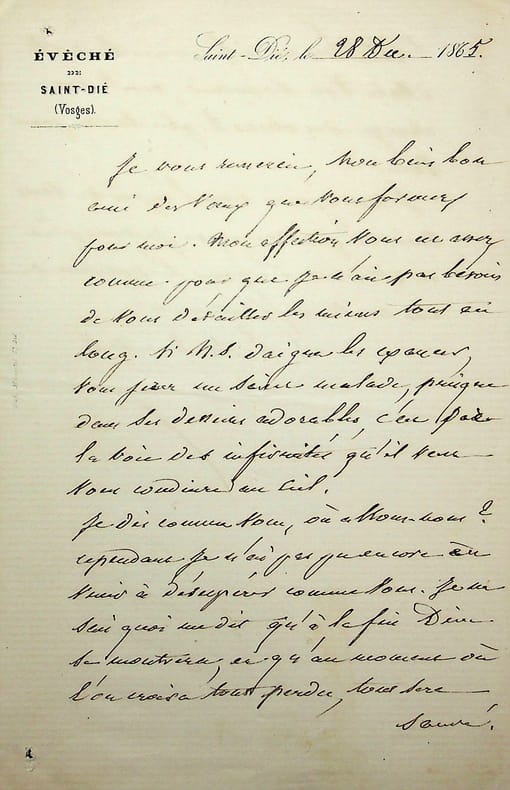 ÉVÊCHÉ
DE
SAINT-DIÉ
(Vosges).
Saint-Dié, le 28 Déc. 1865.
Je vous remercie, mon bien bon
ami des vœux que vous formez
pour moi. Mon affection vous est assez
connue pour que je n'aie pas besoin
de vous détailler les miens tout au
long. Si N. S. daigne les exaucer,
vous serez un saint malade, puisque
dans ses desseins adorables, c'est par
la voie des infirmités qu'il veut
vous conduire au Ciel.
Je dis comme vous, où allons-nous ?
cependant je n'ai pas pu encore en
venir à désespérer comme vous. Je ne
sais quoi me dit qu'à la fin Dieu
se montrera, et qu'au moment où
l'on croira tout perdu, tout sera
sauvé.